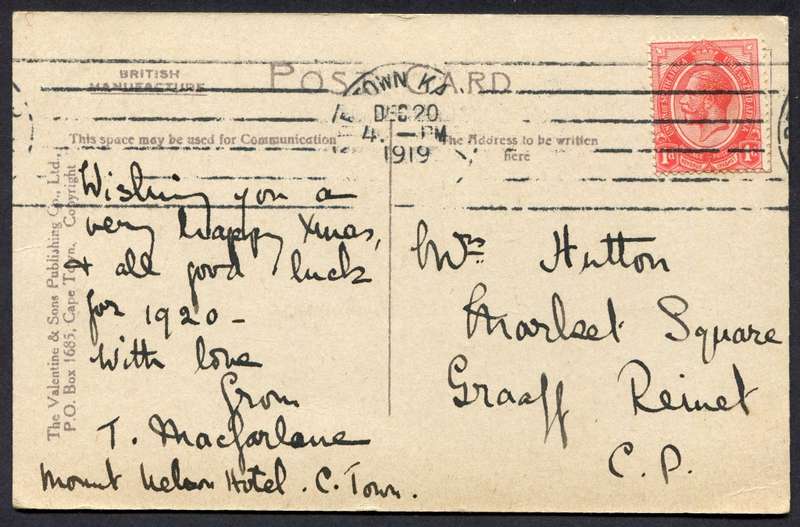 BRITISH
MANUFACTURE
POST CARD
TOWN
DEC 20
4. — PM
1919
This space may be used for Communication
The Address to be written
here
1d 1D
The Valentine & Sons Publishing Co., Ltd.,
P.O. Box 1685, Cape Town. Copyright
Wishing you a
very happy Xmas,
& all good luck
for 1920 -
With love
from
T. Macfarlane
Mount Nelson Hotel. C. Town.
Mrs Hutton
Market Square
Graaff Reinet
C. P.